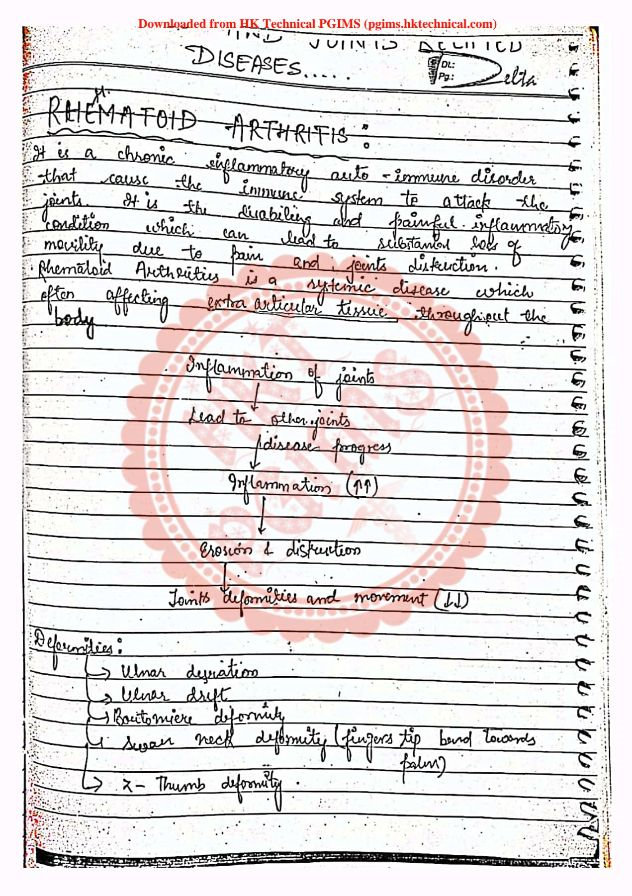 Downloaded from HK Technical PGIMS (pgims.hktechnical.com)
AND JOINTS RELATED
DISEASES.....
Dt.:
Pg.:
Delta
RHEMATOID ARTHRITIS:
It is a chronic inflammatory auto-immune disorder
that cause the immune system to attack the
joints. It is the disabiling and painful inflammatory
condition which can lead to substantial loss of
movility due to pain and joints distruction.
Rhematoid Arthrities is a systemic disease which
often affecting extra articular tissue throughout the
body
Inflammation of joints
Lead to other joints
disease progress
Inflammation (↑↑)
Erosion & distruction
Joints deformities and movement (↓↓)
Deformities:
→ Ulnar deviation
→ Ulnar drift
→ Boutomiere deformity
→ swan neck deformity (fingers tip bend towards
palm)
→ Z- Thumb deformity.